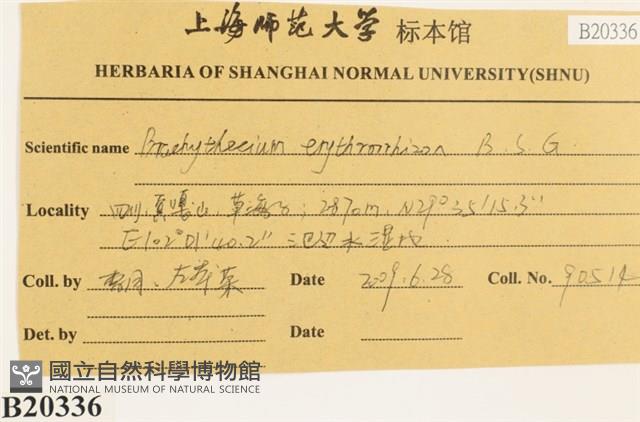 上海师范大学 标本馆
B20336
HERBARIA OF SHANGHAI NORMAL UNIVERSITY(SHNU)
Scientific name Brachythecium erythrorrhizon B.S.G.
Locality 四川, 贡嘎山, 草海子; 2870m. N29°35'15.3''
E102°01'40.2'' 水湿地
Coll. by Date 2009.6.28 Coll. No. 90514
Det. by Date
國立自然科學博物館
NATIONAL MUSEUM OF NATURAL SCIENCE
B20336